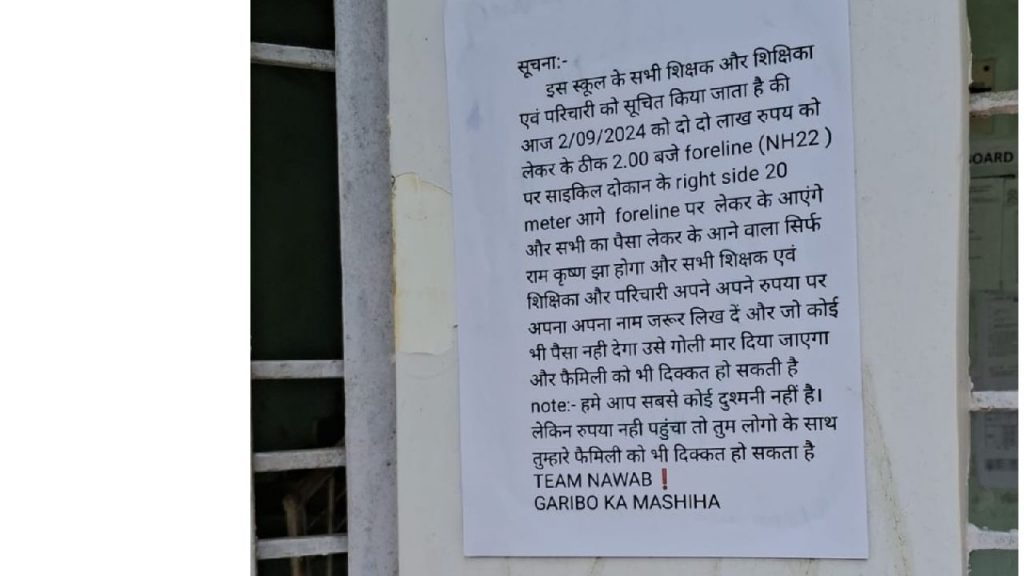 सूचना:-
इस स्कूल के सभी शिक्षक और शिक्षिका
एवं परिचारी को सूचित किया जाता है की
आज 2/09/2024 को दो दो लाख रुपय को
लेकर के ठीक 2.00 बजे foreline (NH22 )
पर साइकिल दोकान के right side 20
meter आगे foreline पर लेकर के आएंगे
और सभी का पैसा लेकर के आने वाला सिर्फ
राम कृष्ण झा होगा और सभी शिक्षक एवं
शिक्षिका और परिचारी अपने अपने रुपया पर
अपना अपना नाम जरूर लिख दें और जो कोई
भी पैसा नही देगा उसे गोली मार दिया जाएगा
और फैमिली को भी दिक्कत हो सकती है
note:- हमे आप सबसे कोई दुश्मनी नहीं है।
लेकिन रुपया नही पहुंचा तो तुम लोगो के साथ
तुम्हारे फैमिली को भी दिक्कत हो सकता है
TEAM NAWAB❗
GARIBO KA MASHIHA
OARD